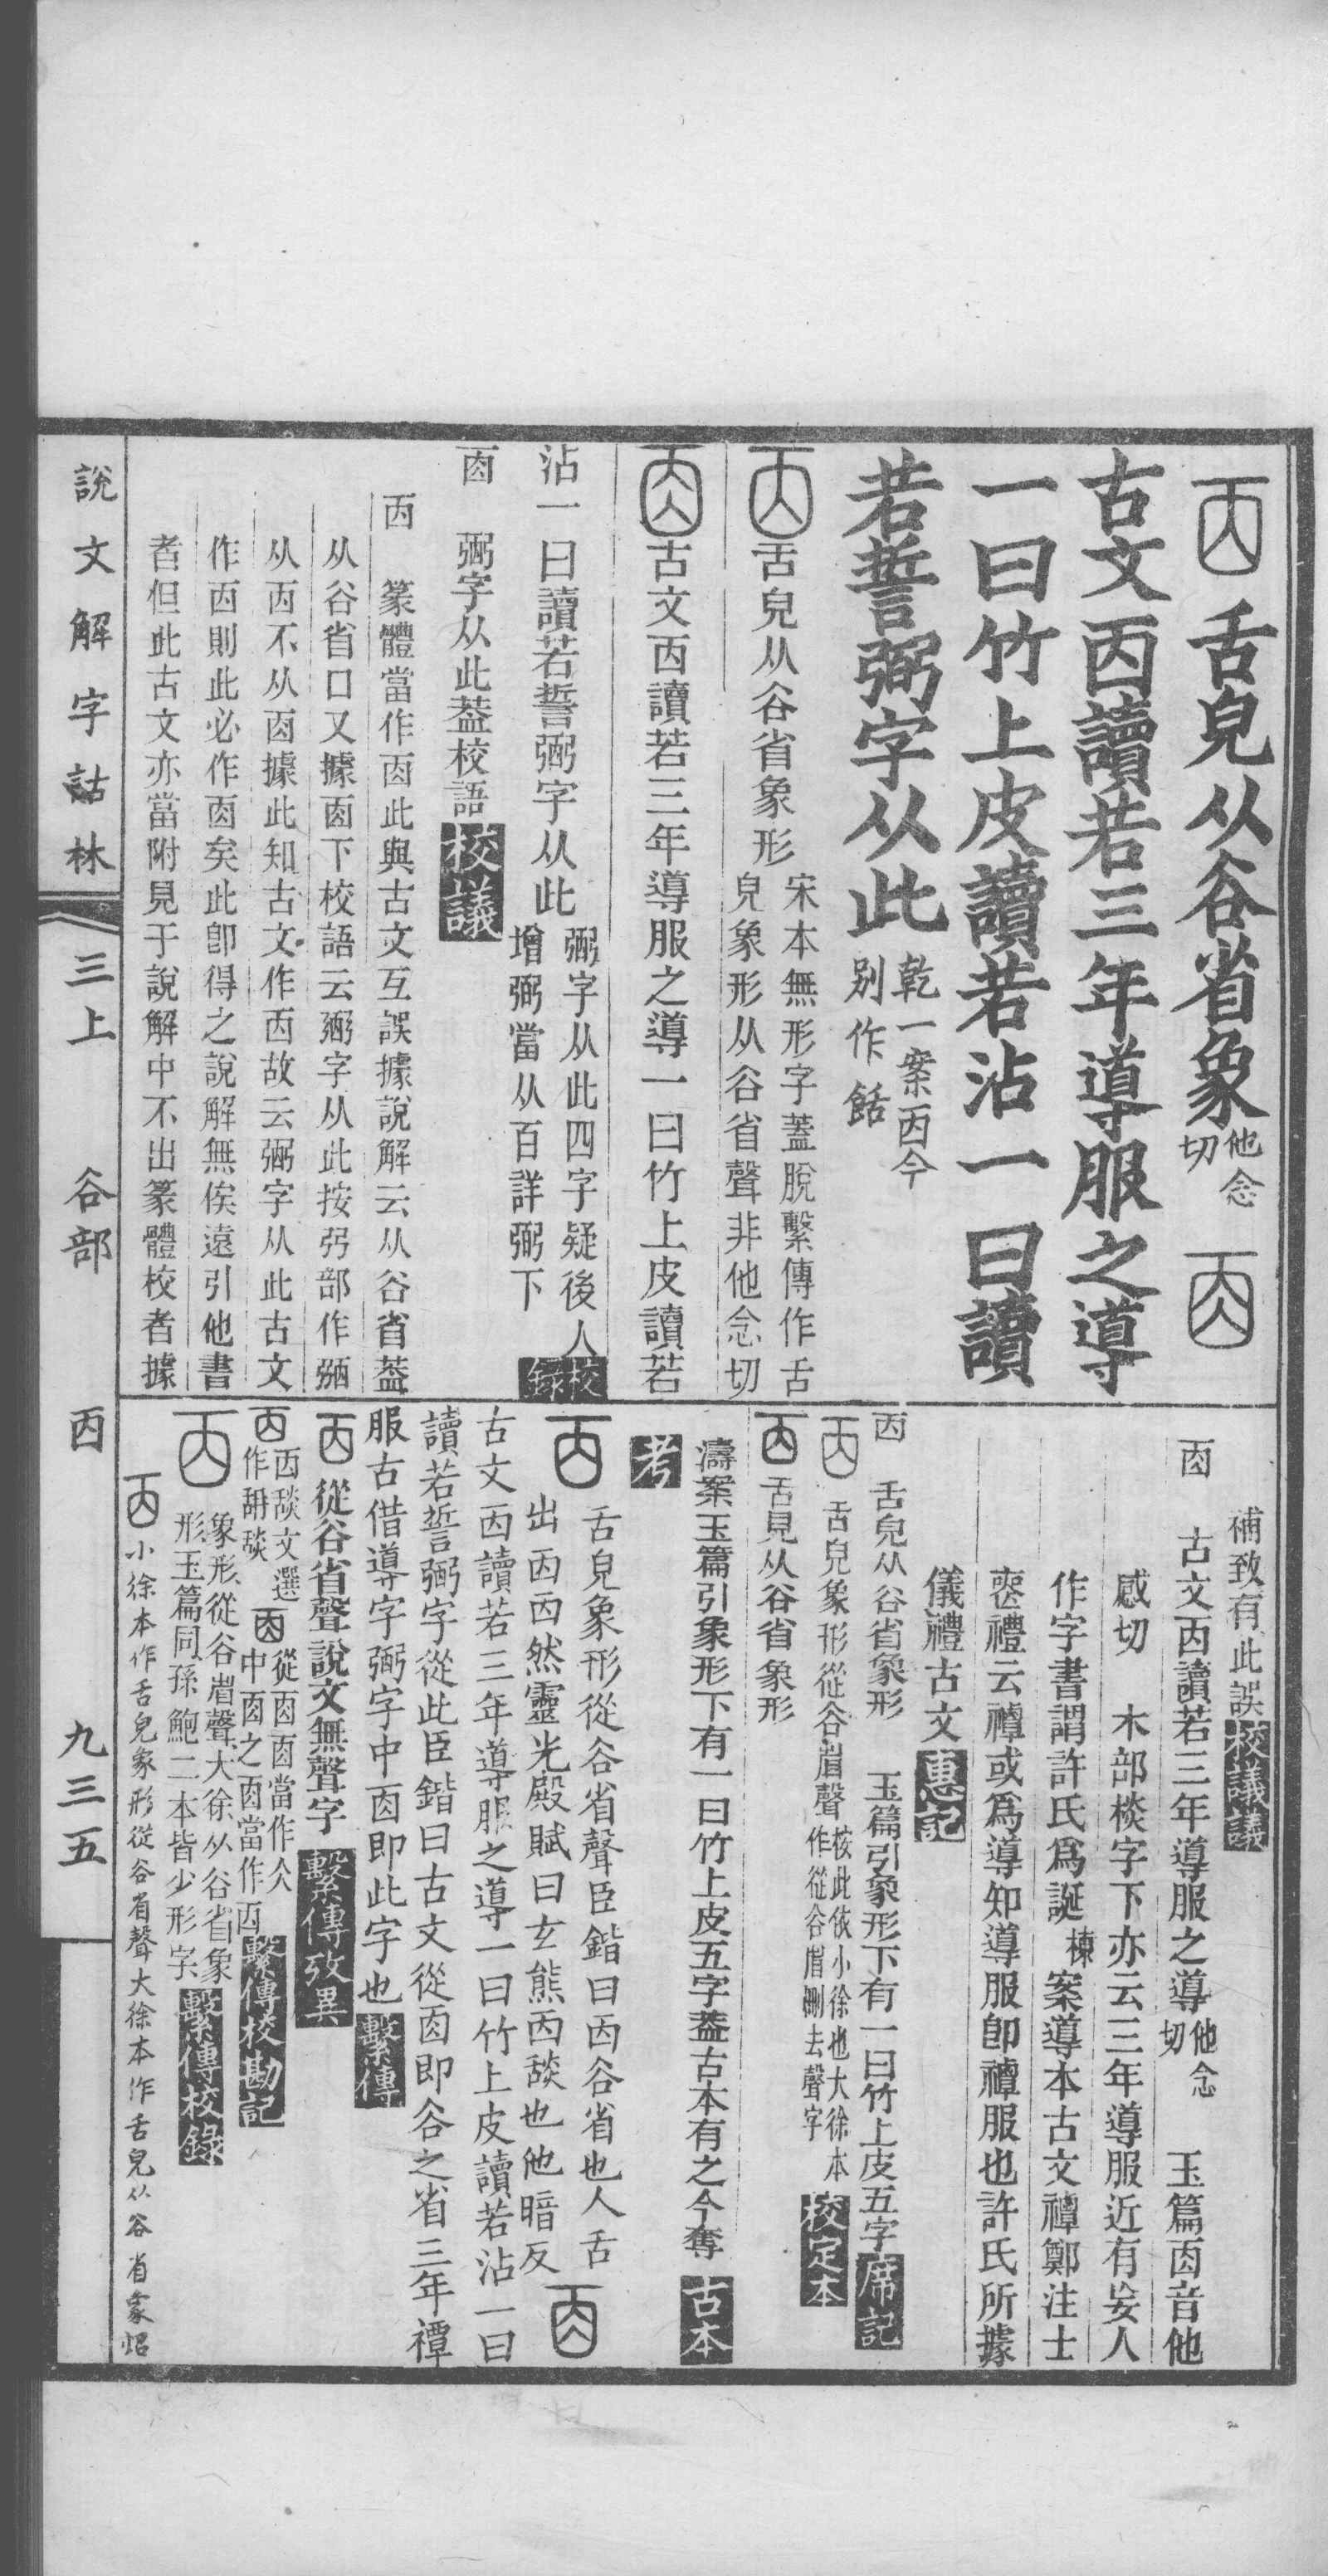 𠀬舌皃从谷省象他念切𠀬
古文𠀬讀若三年導服之導
一曰竹上皮讀若沾一曰讀
若誓弼字从此乾一案𠀬今別作餂
𠀬舌皃从谷省象形宋本無形字蓋脫繫傳作舌皃象形从谷省聲非他念切
古文𠀬讀若三年導服之導一曰竹上皮讀若
沾一曰讀若誓弼字从此弼字从此四字疑後人增弼當从百詳弼下校錄
㐁 弼字从此葢校語校議
𠀬 篆體當作㐁此與古文互誤據說解云从谷省葢
从谷省口又據㐁下校語云弼字从此按弜部作弻
从𠀬不从㐁據此知古文作𠀬故云弼字从此古文
作𠀬則此必作㐁矣此卽得之說解無俟遠引他書
者但此古文亦當附見于說解中不出篆體校者據
補致有此誤校議議
㐁 古文𠀬讀若三年導服之導他念切 玉篇㐁音他
感切 木部棪字下亦云三年導服近有妄人
作字書謂許氏爲誕棟案導本古文禫鄭注士
喪禮云禫或爲導知導服卽禫服也許氏所據
儀禮古文惠記
𠀬 舌皃从谷省象形 玉篇引象形下有一曰竹上皮五字席記
舌皃象形從谷省聲按此依小徐也大徐本作從谷省刪去聲字校定本
舌見从谷省象形
濤案玉篇引象形下有一曰竹上皮五字葢古本有之今奪古本
考
舌皃象形從谷省聲臣鍇曰𠀬谷省也人舌
出𠀬𠀬然靈光殿賦曰玄熊𠀬舕也他暗反
古文𠀬讀若三年導服之導一曰竹上皮讀若沾一曰
讀若誓弼字從此臣鍇曰古文從㐁卽谷之省三年禫
服古借導字弼字中㐁卽此字也繫傳
從谷省聲說文無聲字繫傳攷異
𠀬舕文選作䑙舕 從㐁㐁當作仌中㐁之㐁當作𠀬繫傳校勘記
象形從谷省聲大徐从谷省象形玉篇同孫鮑二本皆少形字繫傳校錄
小徐本作舌皃象形從谷省聲大徐本作舌皃从谷省象
說文解字詁林 三上 谷部 𠀬 九三五